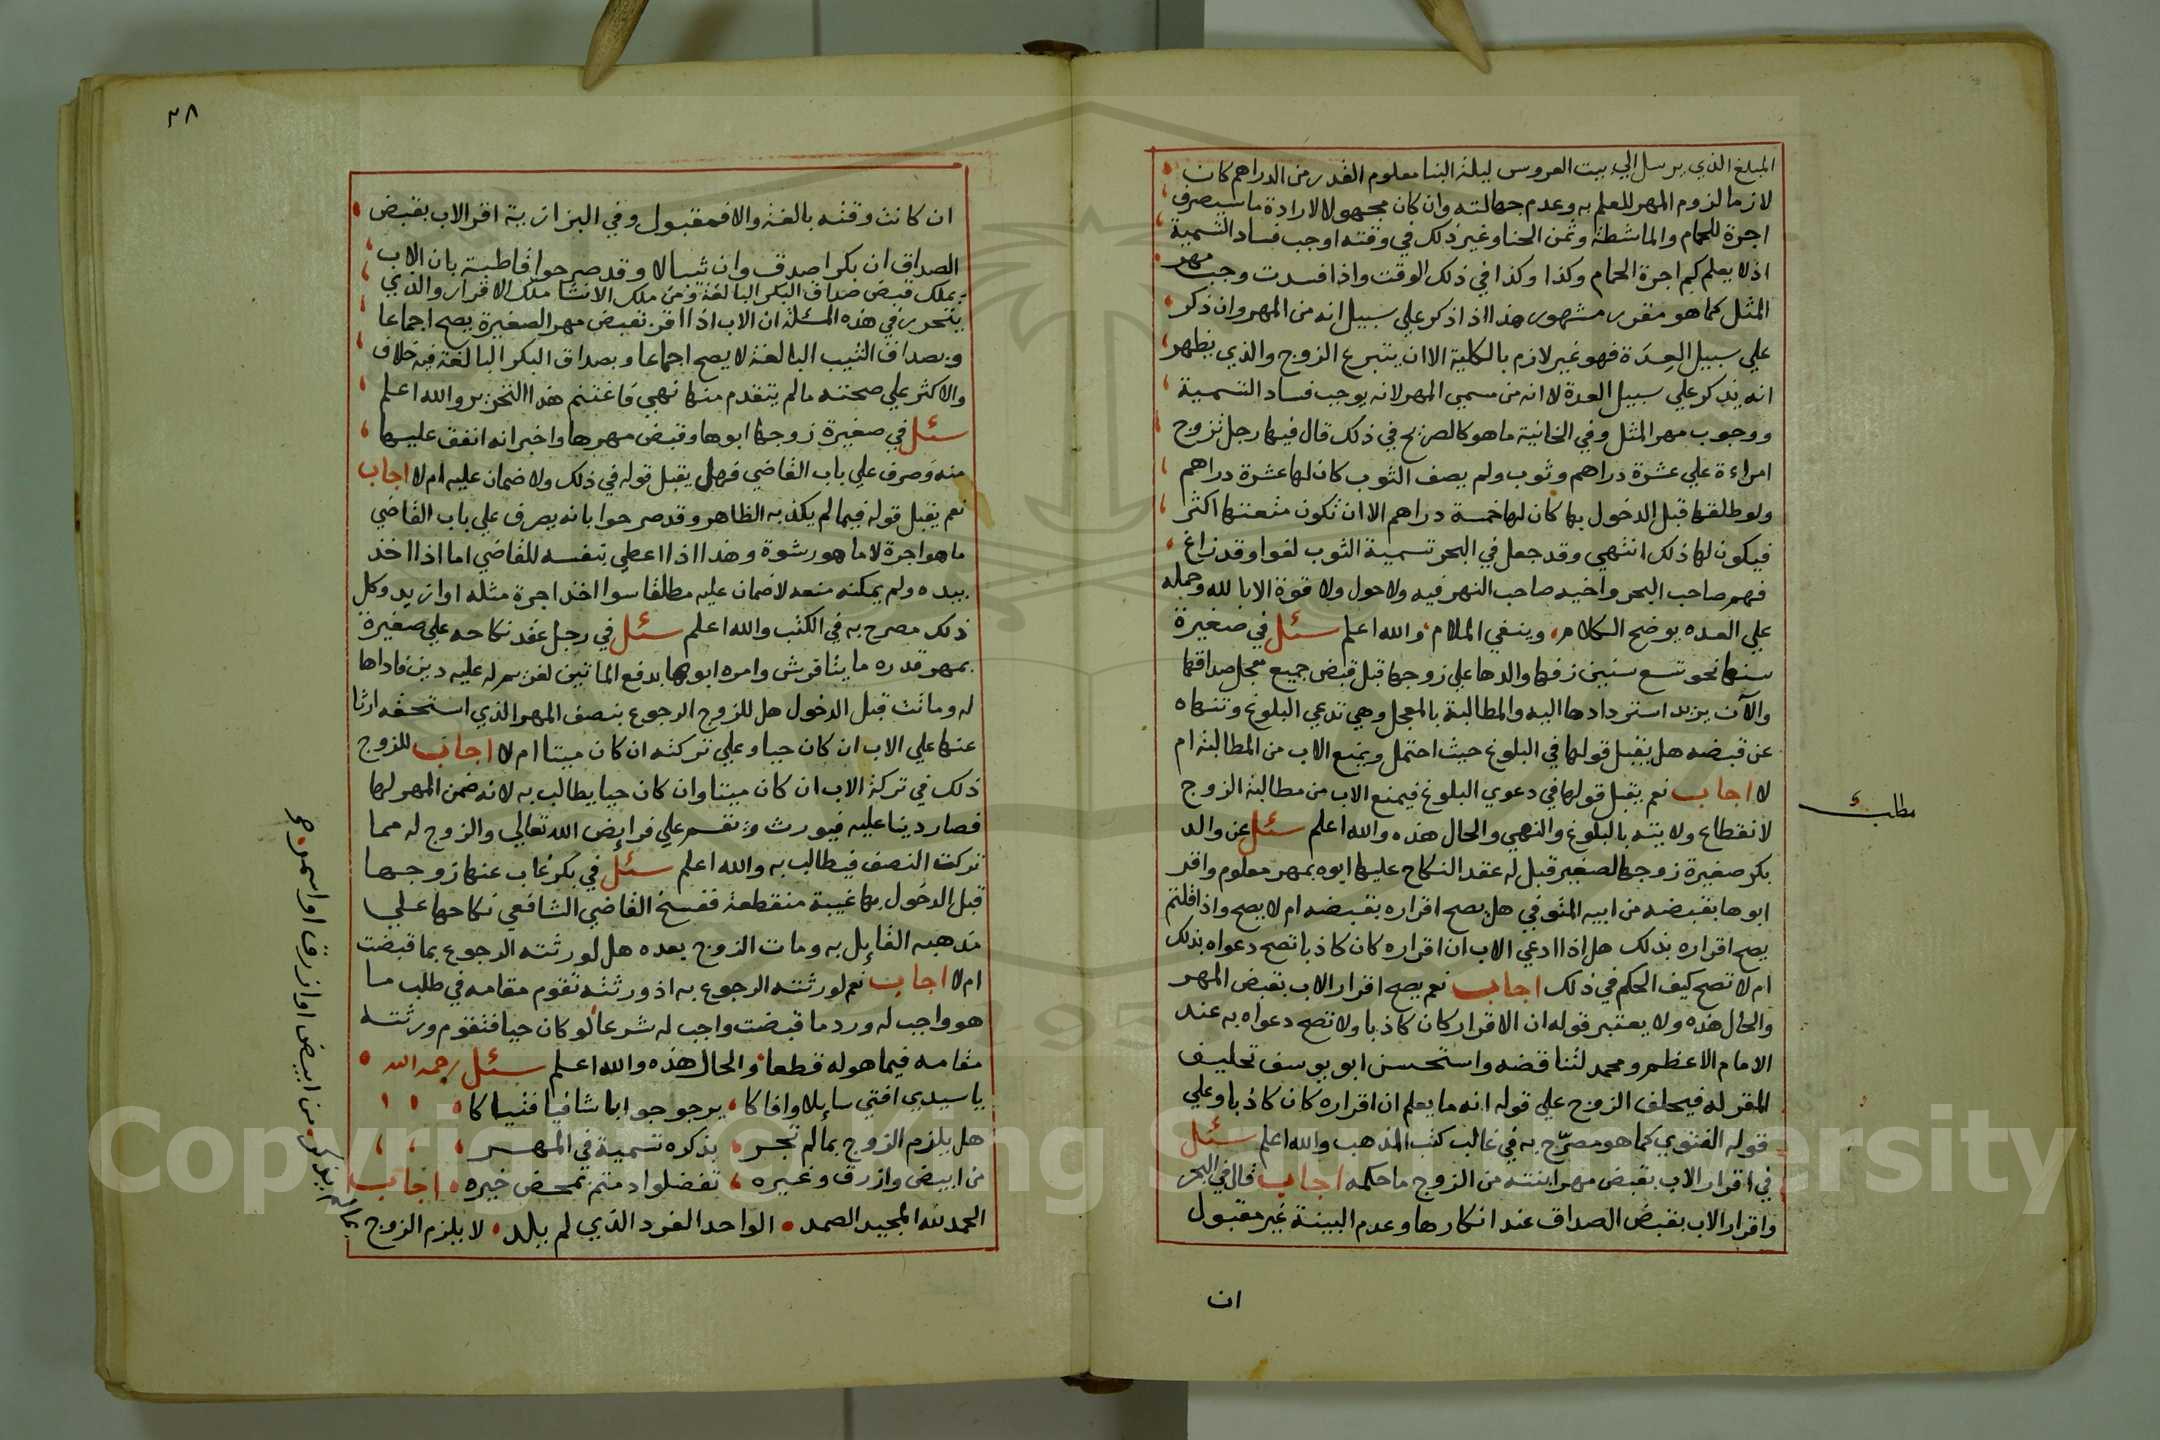 المبلغ الذي يرسل الي بيت العروس ليلة البنا معلوم القدر من الدراهم كان
لازما لزوم المهر للعلم به وعدم جهالته وان كان مجهولا لارادة ما سيصرف
اجرة للحمام والماشطة وثمن الحنا وغير ذلك في وقته اوجب فساد التسمية
اذ لا يعلم كم اجرة الحمام وكذا وكذا في ذلك الوقت واذا فسدت وجب مهر
المثل كما هو مقرر مشهور هذا اذا ذكر علي سبيل انه من المهر وان ذكر
علي سبيل العِدَة فهو غير لازم بالكلية الا ان يتبرع الزوج والذي يظهر
انه يذكر علي سبيل العدة لا انه من مسمي المهر لانه يوجب فساد التسمية
ووجوب مهر المثل وفي الخانية ما هو كالصريح في ذلك قال فيها رجل تزوج
امراءة علي عشرة دراهم وثوب ولم يصف الثوب كان لها عشرة دراهم
ولو طلقها قبل الدخول بها كان لها خمسة دراهم الا ان تكون متعتها اكثر
فيكون لها ذلك انتهي وقد جعل في البحر تسمية الثوب لغوا وقد زاغ
فهم صاحب البحر واخيه صاحب النهر فيه ولا حول ولا قوة الا بالله وحمله
علي العده يوضح الكلام، وينفي الملام، والله اعلم سئل في صغيرة
سنها نحو تسع سنين زفها والدها علي زوجها قبل قبض جميع معجل صداقها
والآن يريد استردادها اليه والمطالبة بالمعجل وهي تدعي البلوغ وتنهاه
عن قبضه هل يقبل قولها في البلوغ حيث احتمل ويمنع الاب من المطالبة ام
لا اجاب نعم يقبل قولها في دعوي البلوغ فيمنع الاب من مطالبة الزوج
لانقطاع ولايته بالبلوغ والنهي والحال هذه والله اعلم سئل عن والد
مطلب
بكر صغيرة زوجها لصغير قبل له عقد النكاح عليها ابوه بمهر معلوم واقر
ابوها بقبضه من ابيه المتوفي هل يصح اقراره بقبضه ام لا يصح واذا قلتم
يصح اقراره بذلك هل اذا ادعي الاب ان اقراره كان كاذبا تصح دعواه بذلك
ام لا تصح كيف الحكم في ذلك اجاب نعم يصح اقرار الاب بقبض المهر
والحال هذه ولا يعتبر قوله ان الاقرار كان كاذبا ولا تصح دعواه به عند
الامام الاعظم ومحمد لتناقضه واستحسن ابو يوسف تحليف
المقر له فيحلف الزوج علي قوله انه ما يعلم ان اقراره كان كاذبا وعلي
قوله الفتوي كما هو مصرّح به في غالب كتب المذهب والله اعلم سئل
في اقرار الاب بقبض مهر ابنته من الزوج ما حكمه اجاب قال في البحر
واقرار الاب بقبض الصداق عند انكارها وعدم البينة غير مقبول
ان
٣٨
ان كانت وقته بالغة والا فمقبول وفي البزازية اقر الاب بقبض
الصداق ان بكرا صدق وان ثيبا لا وقد صرحوا قاطبة بان الاب
يملك قبض صداق البكر البالغة ومن ملك الانشا ملك الاقرار والذي
يتحرر في هذه المسئلة ان الاب اذا اقر بقبض مهر الصغيرة يصح اجماعا
وبصداق الثيب البالغة لا يصح اجماعا وبصداق البكر البالغة فيه خلاف
والاكثر علي صحته ما لم يتقدم منها نهي فاغتنم هذا التحرير والله اعلم
سئل في صغيرة زوجها ابوها وقبض مهرها واخبر انه انفق عليها
منه وصرف علي باب القاضي فهل يقبل قوله في ذلك ولا ضمان عليه ام لا اجاب
نعم يقبل قوله فيما لم يكذبه الظاهر وقد صرحوا بانه يصرف علي باب القاضي
ما هو اجرة لا ما هو رشوة وهذا اذا اعطي بنفسه للقاضي اما اذا اخذ
بيده ولم يمكنه منعه لا ضمان عليه مطلقا سوا اخذ اجرة مثله او ازيد وكل
ذلك مصرح به في الكتب والله اعلم سئل في رجل عقد نكاحه علي صغيرة
بمهر قدره مايتا قرش وامره ابوها بدفع الماتين لغريم له عليه دين فاداها
له وماتت قبل الدخول هل للزوج الرجوع بنصف المهر الذي استحقه ارثا
عنها علي الاب ان كان حيا وعلي تركته ان كان ميتا ام لا اجاب للزوج
ذلك في تركة الاب ان كان ميتا وان كان حيا يطالب به لانه ضمن المهر لها
فصار دينا عليه فيورث ويقسم علي فرايض الله تعالي والزوج له مما
تركت النصف فيطالب به والله اعلم سئل في بكر غاب عنها زوجها
قبل الدخول بها غيبة منقطعة ففسخ القاضي الشافعي نكاحها علي
مذهبه القايل به ومات الزوج بعده هل لورثته الرجوع بما قبضت
ام لا اجاب نعم لورثته الرجوع به اذ ورثته تقوم مقامه في طلب ما
هو واجب له ورد ما قبضت واجب له شرعا لو كان حيا فتقوم ورثته
مقامه فيما هو له قطعا والحال هذه والله اعلم سئل رحمه الله
يا سيدي افتي سايلا وافاكا، يرجو جوابا شافيا فتياكا
هل يلزم الزوج بما لم تجر، بذكره تسمية في المهر
من ابيض وازرق وغيره، تفضلوا دمتم بمحض خيره اجاب
الحمد لله المجيد الصمد الواحد الفرد الذي لم يلد لا يلزم الزوج
بما لم يذكر من ابيض او ازرق او اسمر